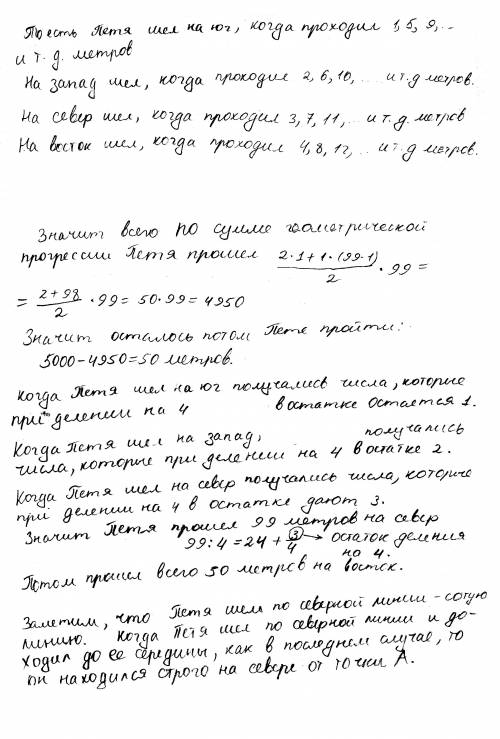 То есть Петя шел на юг, когда проходил 1, 5, 9, ..
и т. д. метров
На запад шел, когда проходил 2, 6, 10, ... и т.д метров.
На север шел, когда проходил 3, 7, 11, .. и т. д. метров
На восток шел, когда проходил 4, 8, 12, .. и т.д метров.
Значит всего по сумме геометрической
прогрессии Петя прошел (2·1+1·(99-1))/2 · 99 =
= (2+98)/2 · 99 = 50·99 = 4950
Значит осталось потом Пете пройти:
5000-4950=50 метров.
Когда Петя шел на юг получались числа, которые
при делении на 4 в остатке остается 1.
Когда Петя шел на запад, получались
числа, которые при делении на 4 в остатке 2.
Когда Петя шел на север получались числа, которые
при делении на 4 в остатке дают 3.
Значит Петя прошел 99 метров на север
99:4=24+3/4 → остаток деления
на 4.
Потом прошел всего 50 метров на восток.
Заметим, что Петя шел по северной линии - сотую
линию. Когда Петя шел по северной линии и до-
ходил до ее середины, как в последнем случае, то
он находился строго на севере от точки А.